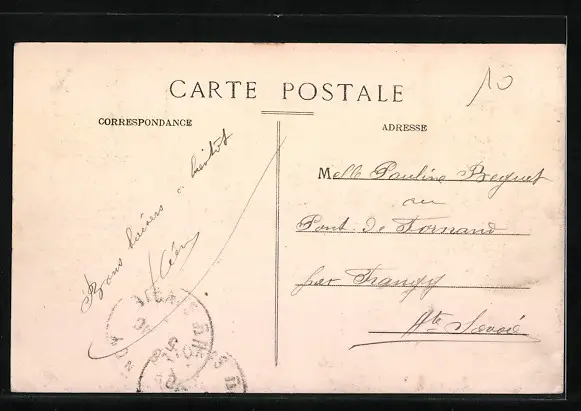 10
CARTE POSTALE
CORRESPONDANCE
ADRESSE
Bons baisers a bientôt
Melle Pauline Beguet
au
Pont de Fornand
par Frangy
Hte Savoie